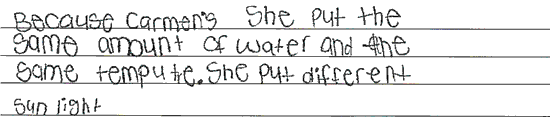 Because Carmen's She put the
same amount of water and the
same tempute. She put different
sun light